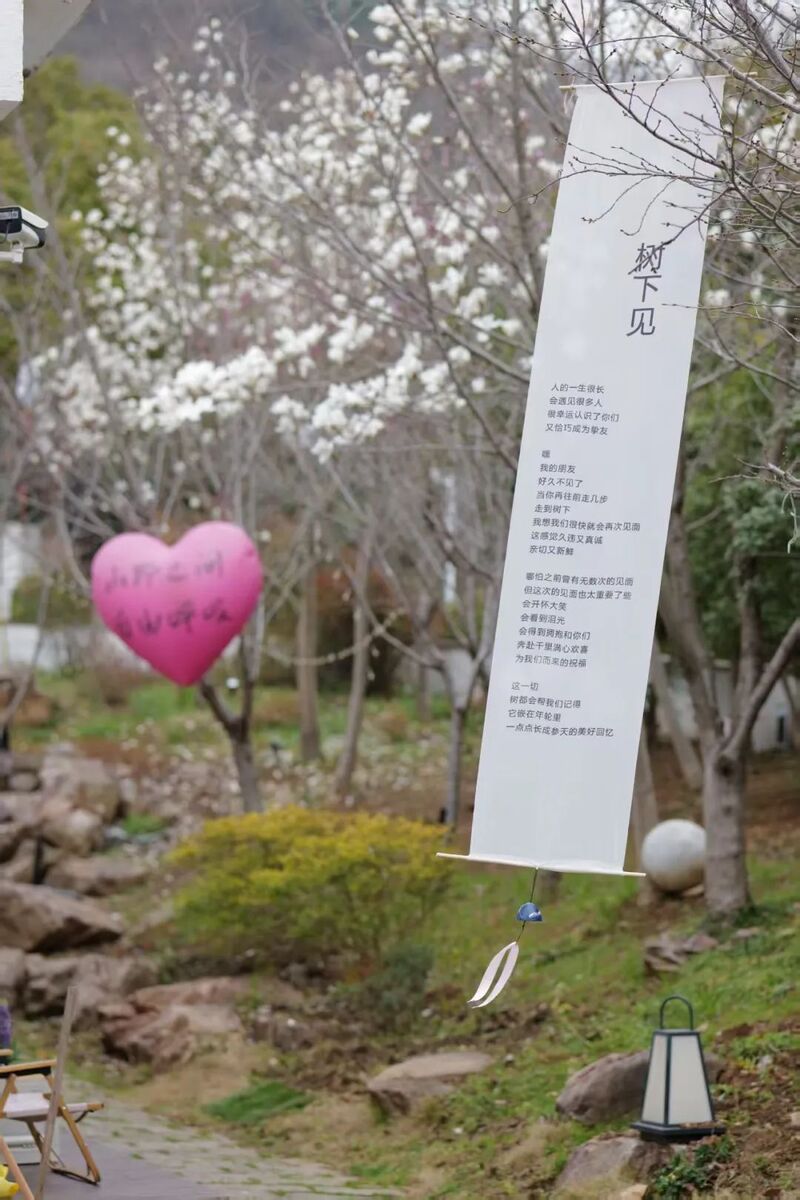 树下见
人的一生很长
会遇见很多人
很幸运认识了你们
又恰巧成为挚友
嘿
我的朋友
好久不见了
当你再往前走几步
走到树下
我想我们很快就会再次见面
这感觉久违又真诚
亲切又新鲜
哪怕之前曾有无数次的见面
但这次的见面也太重要了些
会开怀大笑
会看到泪光
会得到拥抱和你们
奔赴千里满心欢喜
为我们而来的祝福
这一切
树都会帮我们记得
它嵌在年轮里
一点点长成参天的美好回忆
山野之间
自由呼吸